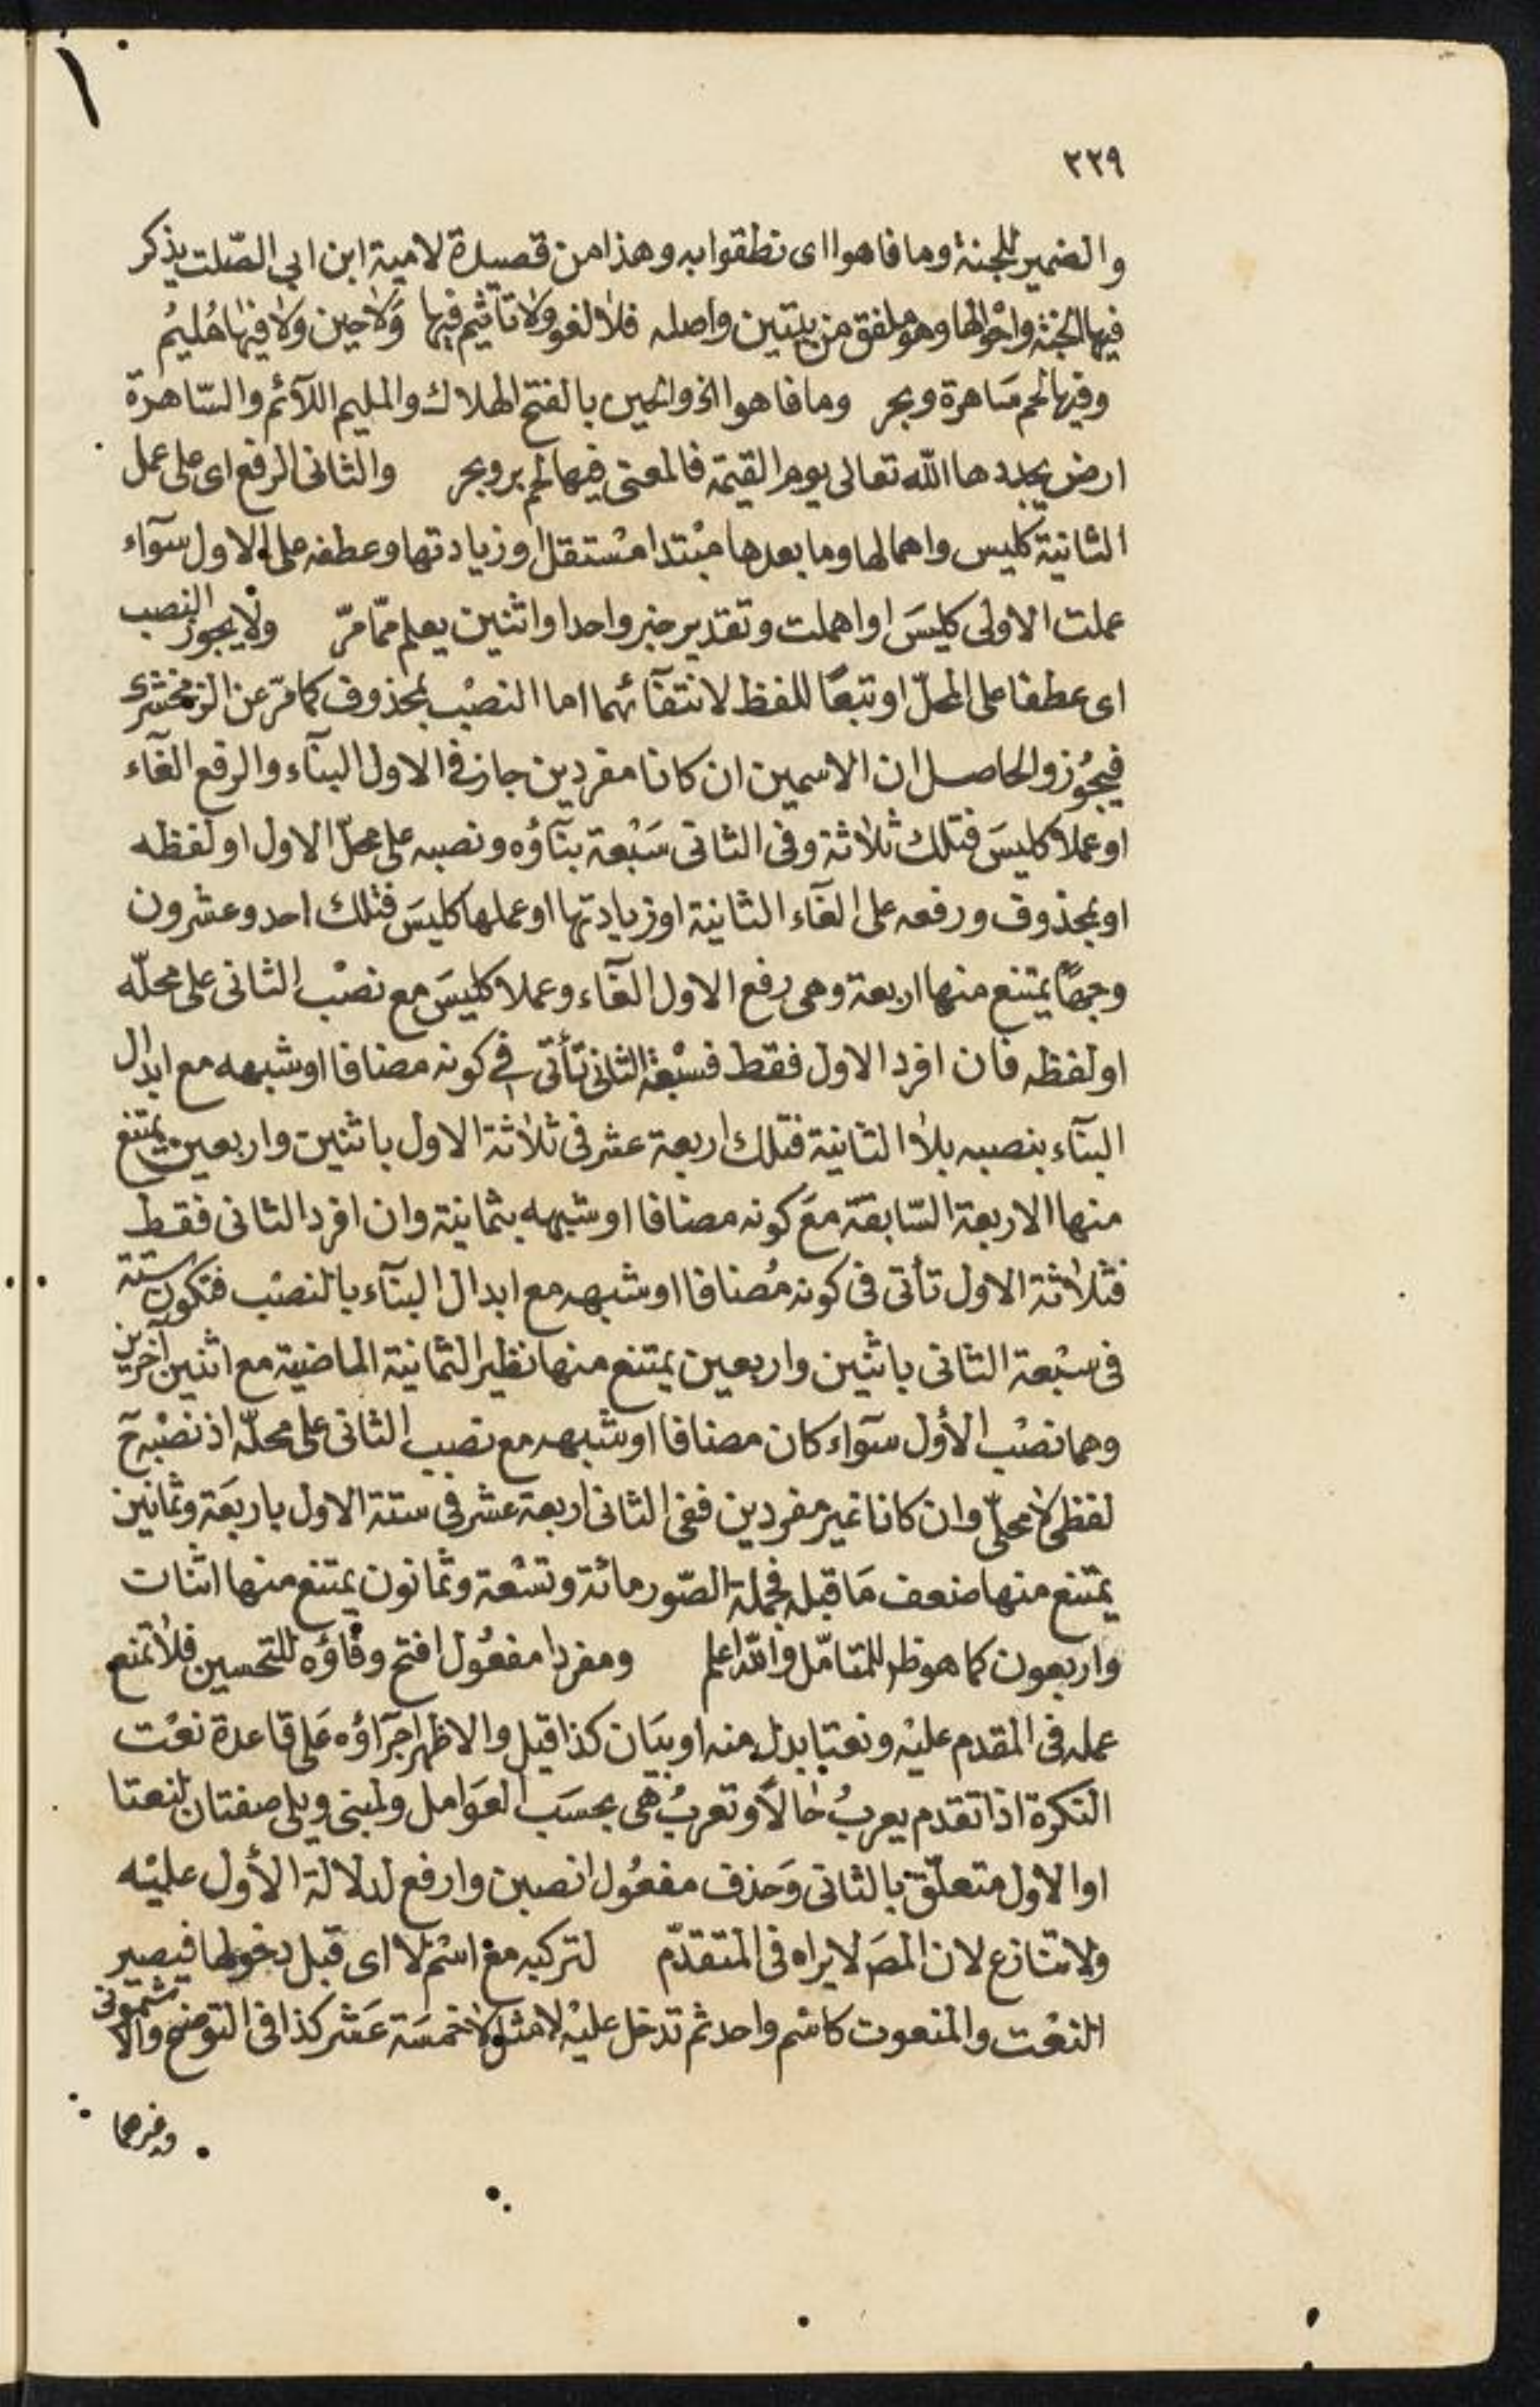 ٢٢٩
والضمير للجنة وما فاهوا اى نطقوا به وهذا من قصيدة لامية ابن ابي الصّلت يذكر
فيها الجنة واحوالها وهو ملفق من بيتين واصله فلا لغو ولا تأثيم فيها ولا حين ولا فيها مُليمُ
وفيها لحم سَاهرة وبحر وما فاهوا الخ والحين بالفتح الهلاك والمليم اللآئم والسّاهرة
ارض يجددها الله تعالى يوم القيمة فالمعنى فيها لحم بر وبحر والثانى الرفع اى على عمل
الثانية كليس واهمالها وما بعدها مبْتدا مسْتقل او زيادتها وعطفه على الاول سوآء
عملت الاولى كليسَ او اهملت وتقدير خبر واحد او اثنين يعلم ممّا مرّ ولا يجوز النصب
اى عطفا على المحلّ او تبعًا للفظ لانتفآئهما اما النصْب بمحذوف كما مرّ عن الزمخشرى
فيجُوز والحاصل ان الاسمين ان كانا مفردين جاز فى الاول البنآء والرفع الغآء
او عملا كليسَ فتلك ثلاثة وفى الثانى سَبْعة بنآؤه ونصبه على محلّ الاول او لفظه
او بمحذوف ورفعه على الغآء الثانية او زيادتها او عملها كليسَ فتلك احد وعشرون
وجهًا يمتنع منها اربعة وهى رفع الاول الغآء وعملا كليسَ مع نصْب الثانى على محلّه
او لفظه فان افرد الاول فقط فسبْعة الثانى تأتى فى كونه مضافا او شبهه مع ابدال
البنآء بنصبه بلا الثانية فتلك اربعة عشر فى ثلاثة الاول باثنين واربعين يمتنع
منها الاربعة السّابقة مع كونه مضافا او شبهه بثمانية وان افرد الثانى فقط
فثلاثة الاول تأتى فى كونه مُضافا او شبهه مع ابدال البنآء بالنصْب فتكون ستة
فى سبْعة الثانى باثنين واربعين يمتنع منها نظير الثمانية الماضية مع اثنين آخرين
وهما نصْب الأول سوآء كان مضافا او شبهه مع نصب الثانى على محلّه اذ نصْبه ح
لفظى لا محلّى وان كانا غير مفردين ففى الثانى اربعة عشر فى ستة الاول باربعَة وثمانين
يمتنع منها ضعف مَا قبله فجملة الصّور مائة وتسْعة وثمانون يمتنع منها اثنان
واربعون كما هو ظ للمتامّل والله اعلم ومفردا مفعُول افتح وفاؤه للتحسين فلا تمنع
عمله فى المقدم عليْه ونعتا بدل منه او بيَان كذا قيل والاظهر اجرآؤه عَلى قاعدة نعْت
النكرة اذا تقدم يعربُ حالاً وتعربُ هى بحسَب العوَامل ولمبنى ويلى صفتان لنعتا
او الاول متعلّق بالثانى وَحذف مفعُول انصبن وارفع لدلالة الأول عليْه
ولا تنازع لان المصَ لا يراه فى المتقدّم لتركبه مع اسْم لا اى قبل دخولها فيصير
النعْت والمنعوت كاسْم واحد ثم تدخل عليْه لا مثل لا خمسَة عَشر كذا فى التوضيح والاشمونى
وغيرهما